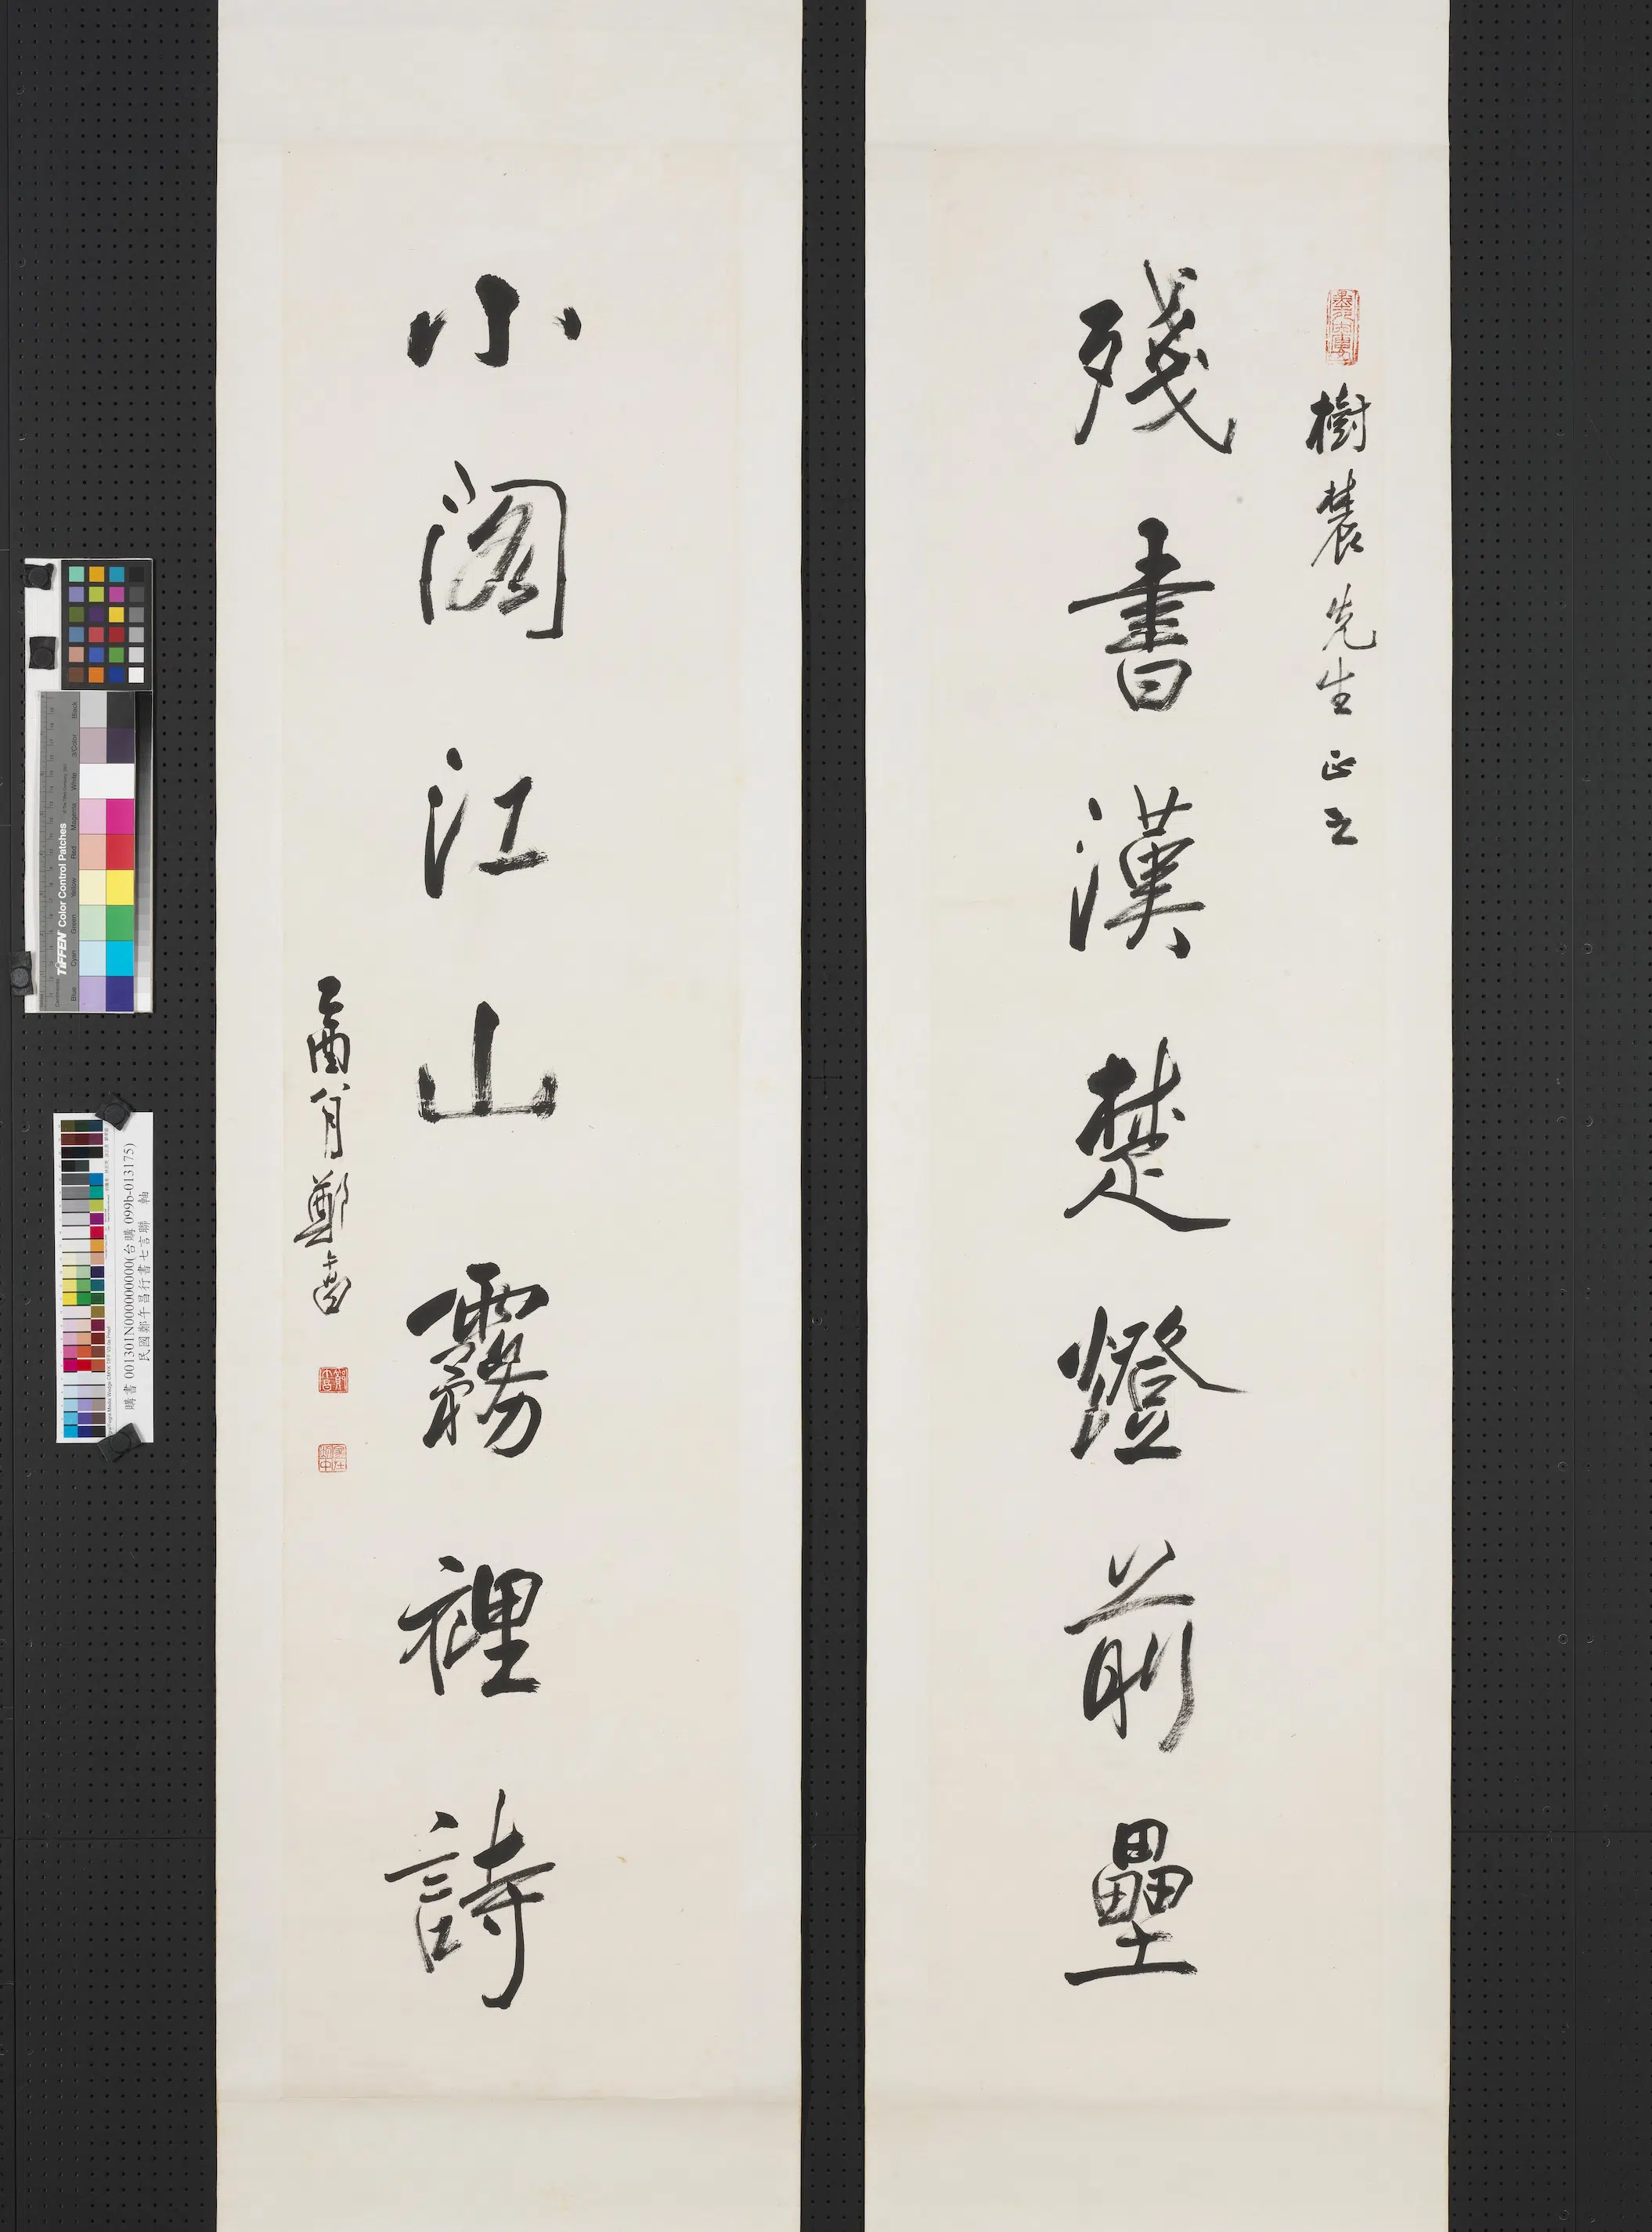 樹蓑先生正之
殘書漢楚燈前壘
小閣江山霧裡詩
乙酉八月鄭午昌
購書 001301N000000000(台購 099b-013175)
民國鄭午昌行書七言聯 軸
TIFFEN Color Control Patches
Blue Cyan Green Yellow Red Magenta White 3/Color Black